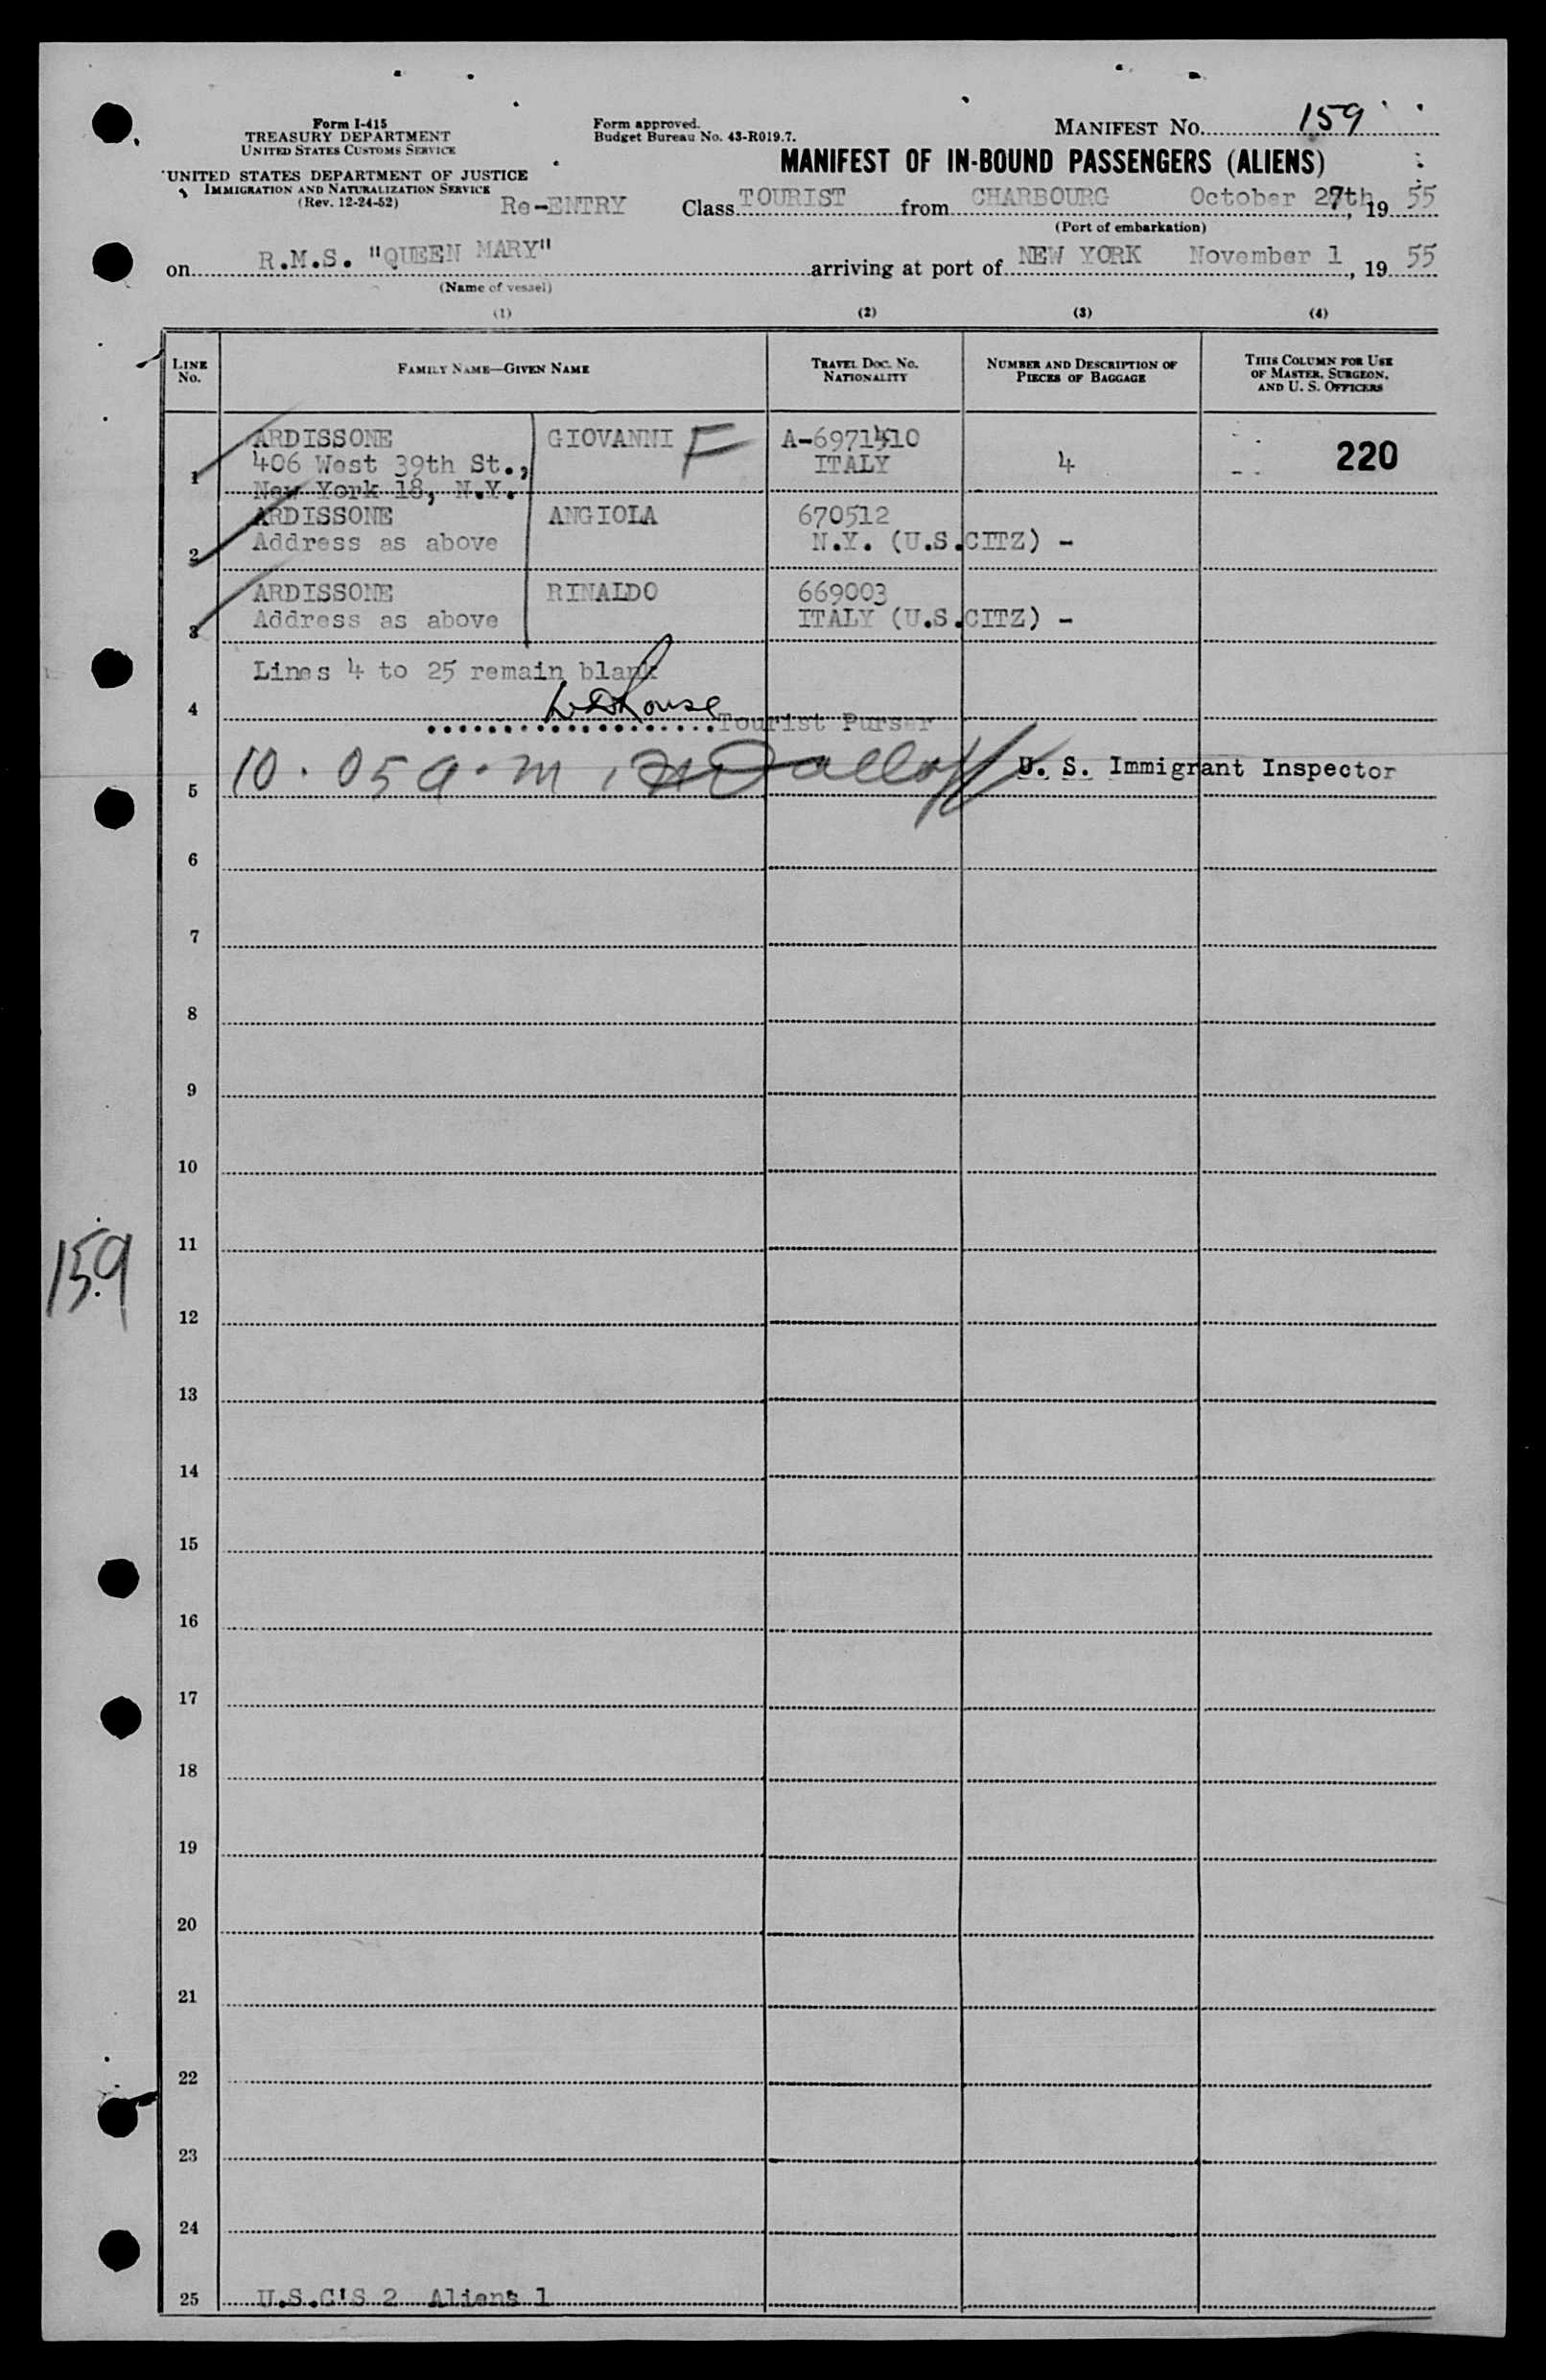 Form I-415
TREASURY DEPARTMENT
UNITED STATES CUSTOMS SERVICE
UNITED STATES DEPARTMENT OF JUSTICE
IMMIGRATION AND NATURALIZATION SERVICE
(Rev. 12-24-52)
Form approved.
Budget Bureau No. 43-R019.7.
MANIFEST No. 159
MANIFEST OF IN-BOUND PASSENGERS (ALIENS)
Re-ENTRY Class TOURIST from CHARBOURG October 27th, 19 55
(Port of embarkation)
on R.M.S. "QUEEN MARY" arriving at port of NEW YORK November 1, 19 55
(Name of vessel)
(1) (2) (3) (4)
LINE No. FAMILY NAME—GIVEN NAME TRAVEL DOC. No. NATIONALITY NUMBER AND DESCRIPTION OF PIECES OF BAGGAGE THIS COLUMN FOR USE OF MASTER, SURGEON, AND U. S. OFFICERS
ARDISSONE GIOVANNI F A-6971410
1 406 West 39th St., ITALY 4 220
New York 18, N.Y.
ARDISSONE ANGIOLA 670512
2 Address as above N.Y. (U.S.CITZ) -
ARDISSONE RINALDO 669003
3 Address as above ITALY (U.S.CITZ) -
Lines 4 to 25 remain blank
4 Tourist Purser
5 10.05 a.m. U. S. Immigrant Inspector
6
7
8
9
10
11
159
12
13
14
15
16
17
18
19
20
21
22
23
24
25 U.S.C'S 2 Aliens 1